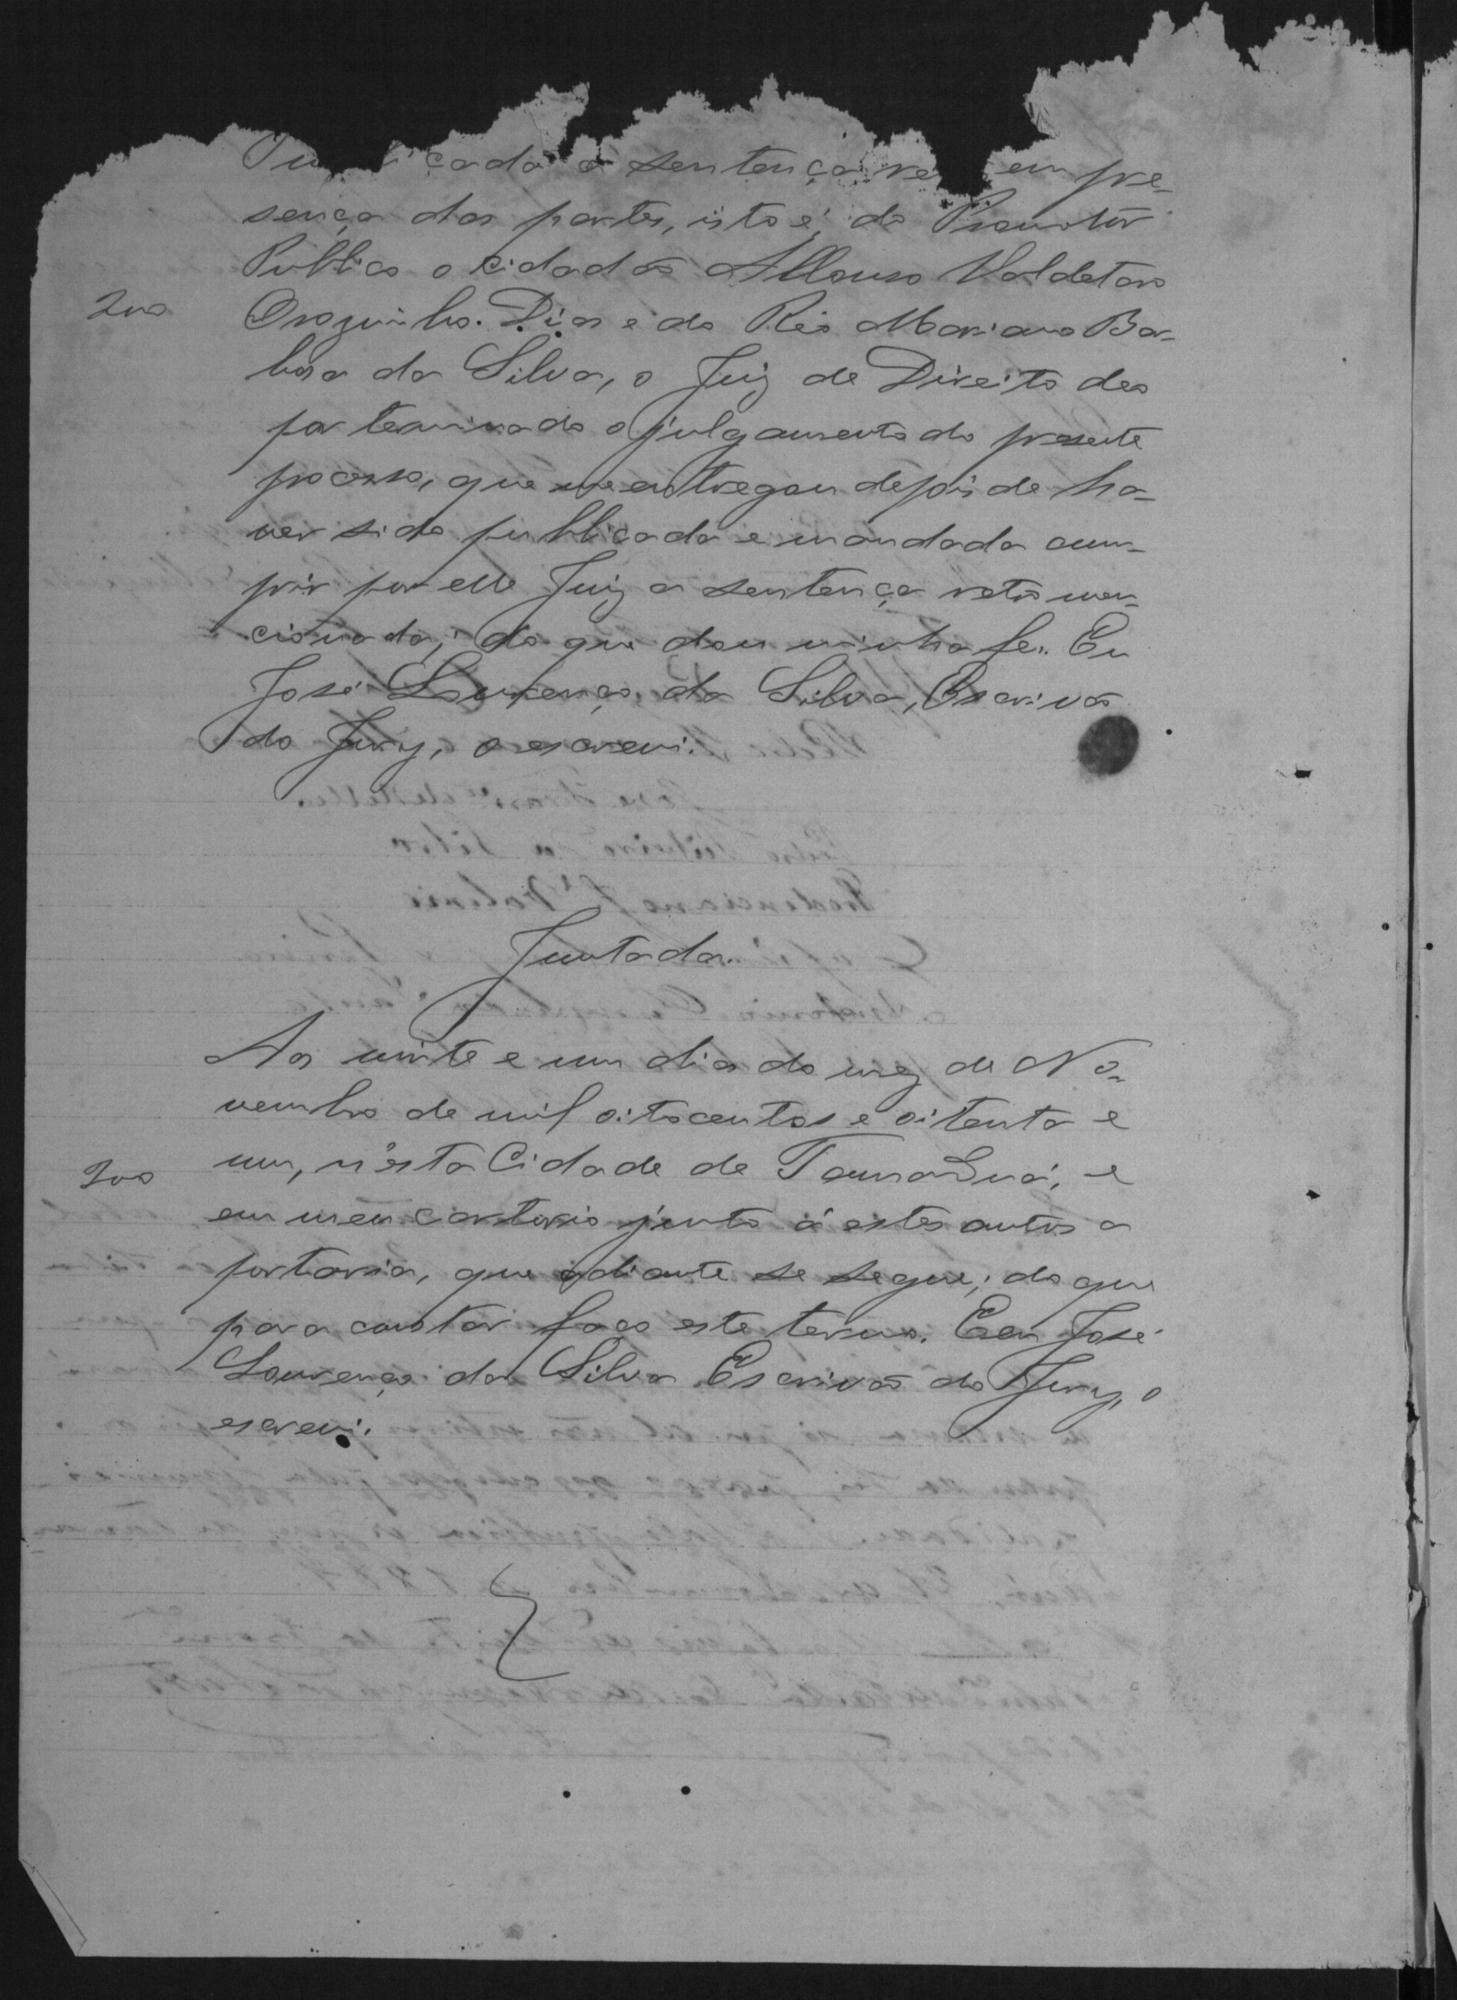 Publicada a sentença re em pre-
sença das partes, isto é, do Promotor
Publico o Cidadão Affonso Valdetaro
200
Orozimbo. Dias e do Réo Mariano Bar-
bosa da Silva, o Juiz de Direito deo
por terminado o julgamento do presente
processo, que me entregou depois de ha-
ver sido publicada e mandada cum-
prir por elle Juiz a sentença retro men-
cionada; do que dou minha fé. Eu
José Lourenço da Silva, Escrivão
do Jury, o escrevi.
Juntada.
Aos vinte e um dias do mez de No-
vembro de mil oitocentos e oitenta e
200
um, n'esta Cidade de , e
em meu cartorio junto á estes autos a
portaria, que adiante se segue; do que
para constar faço este termo. Eeu José
Lourenço da Silva Escrivão do Jury, o
escrevi.